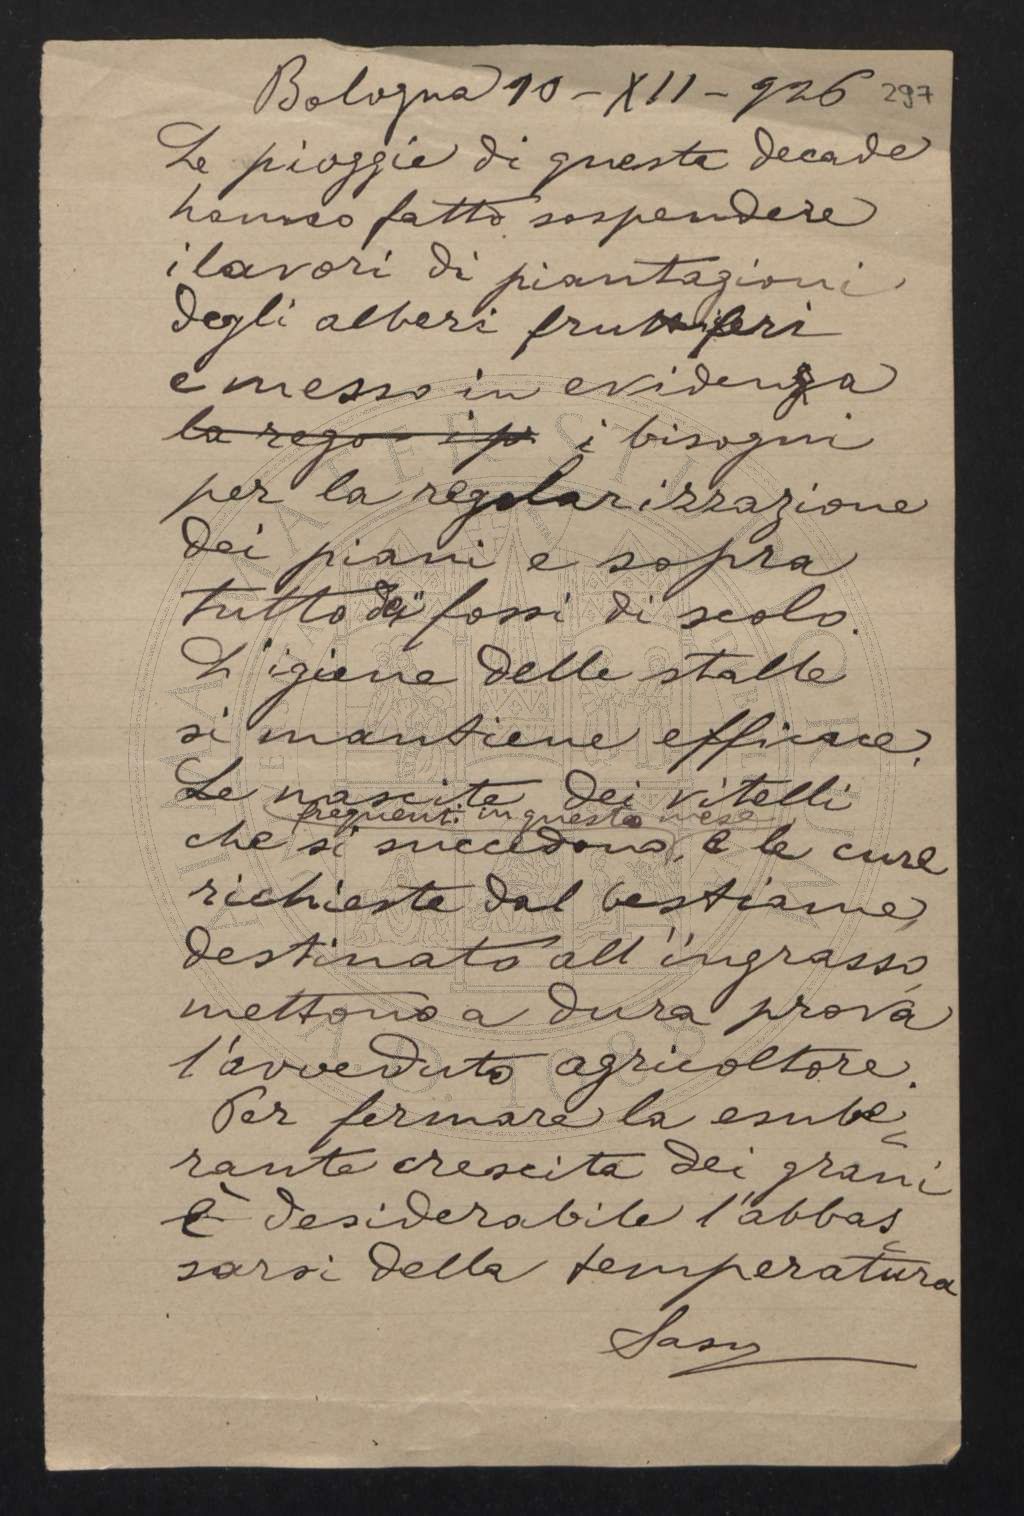 Bologna 10 - XII - 926 297
Le pioggie di questa decade
hanno fatto sospendere
i lavori di piantagioni
degli alberi fruttiferi
e messo in evidenza
la rego ip i bisogni
per la regolarizzazione
dei piani e sopra
tutto dei fossi di scolo.
L'igiene delle stalle
si mantiene efficace.
Le nascite dei vitelli
frequenti in questo mese
che si succedono, e le cure
richieste dal bestiame
destinato all'ingrasso
mettono a dura prova
l'avveduto agricoltore.
Per fermare la esube-
rante crescita dei grani
è desiderabile l'abbas-
sarsi della temperatura